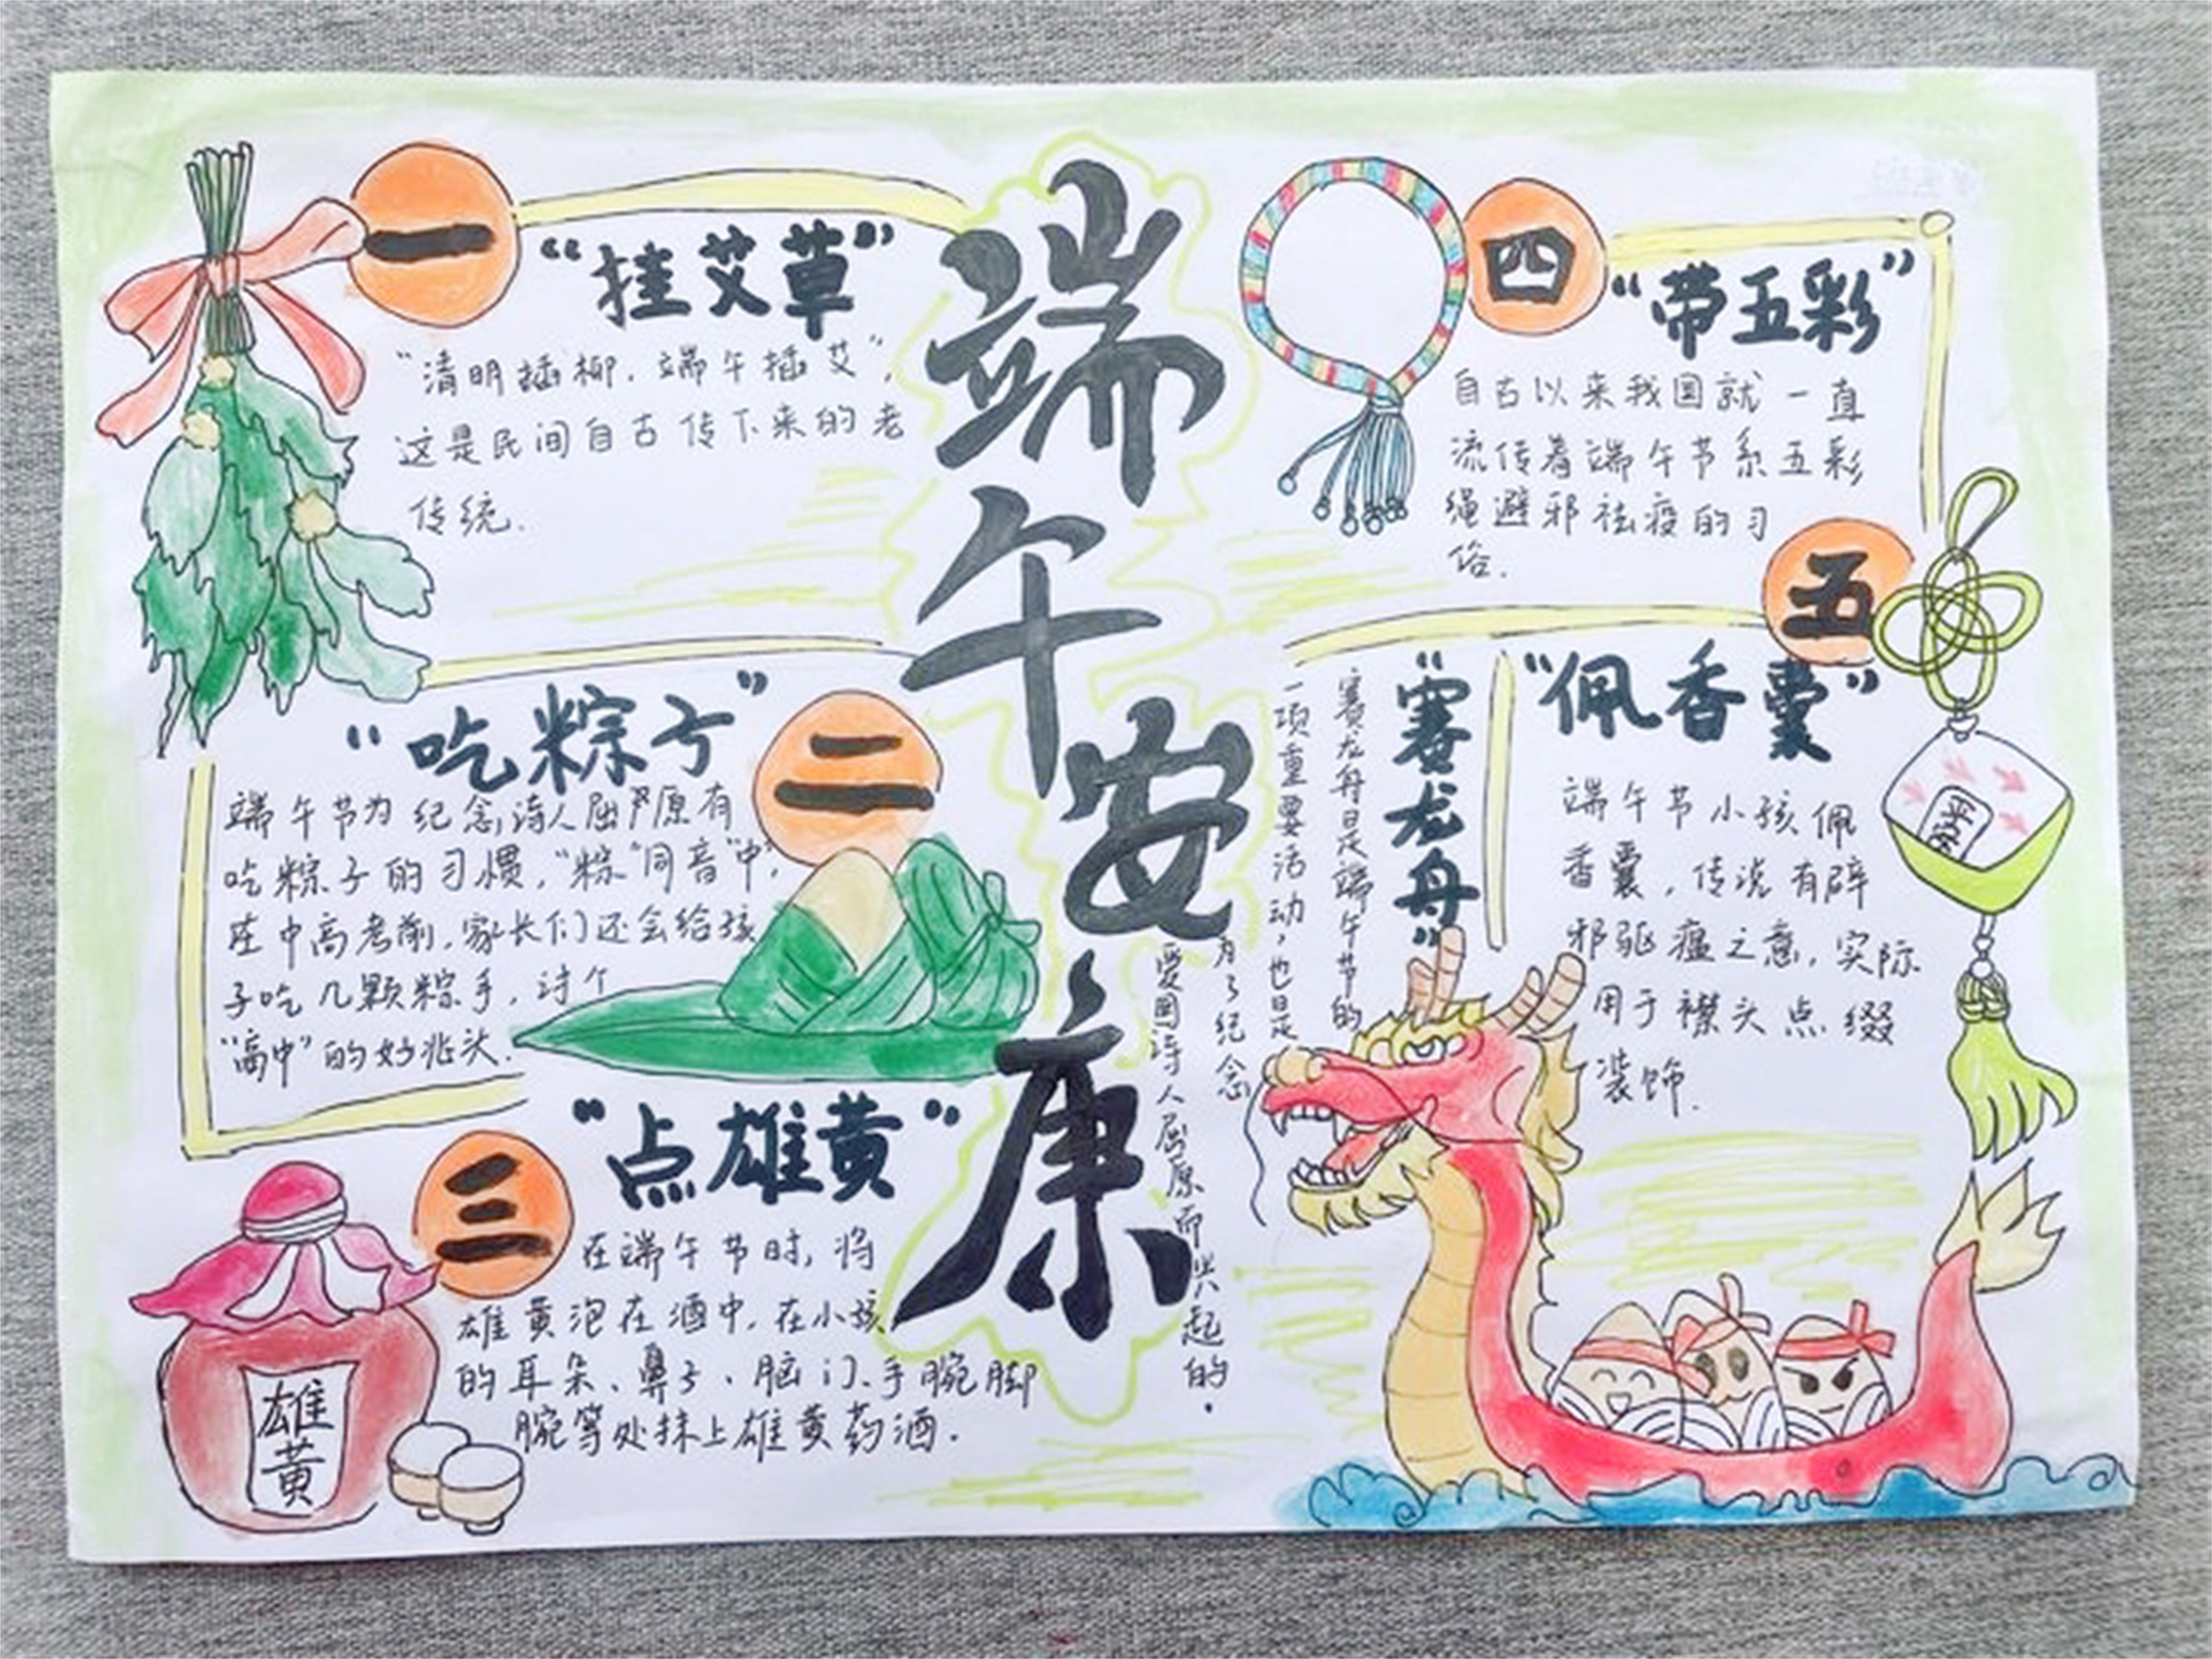 端午安康
一
“挂艾草”
“清明插柳.端午插艾”,
这是民间自古传下来的老
传统.
“吃粽子”
二
端午节为纪念诗人屈原有
吃粽子的习惯,“粽”同音“中”,
在中高考前,家长们还会给孩
子吃几颗粽手,讨个
“高中”的好兆头.
三
“点雄黄”
在端午节时,将
雄黄泡在酒中,在小孩
的耳朵、鼻子、脑门、手腕脚
腕等处抹上雄黄药酒.
雄
黄
四
“带五彩”
自古以来我国就一直
流传着端午节系五彩
绳避邪祛疫的习
俗.
五
“佩香囊”
端午节小孩佩
香囊,传说有辟
邪驱瘟之意,实际
用于襟头点缀
装饰.
平安
“赛龙舟”
赛龙舟是端午节的
一项重要活动,也是
为了纪念
爱国诗人屈原而兴起的.